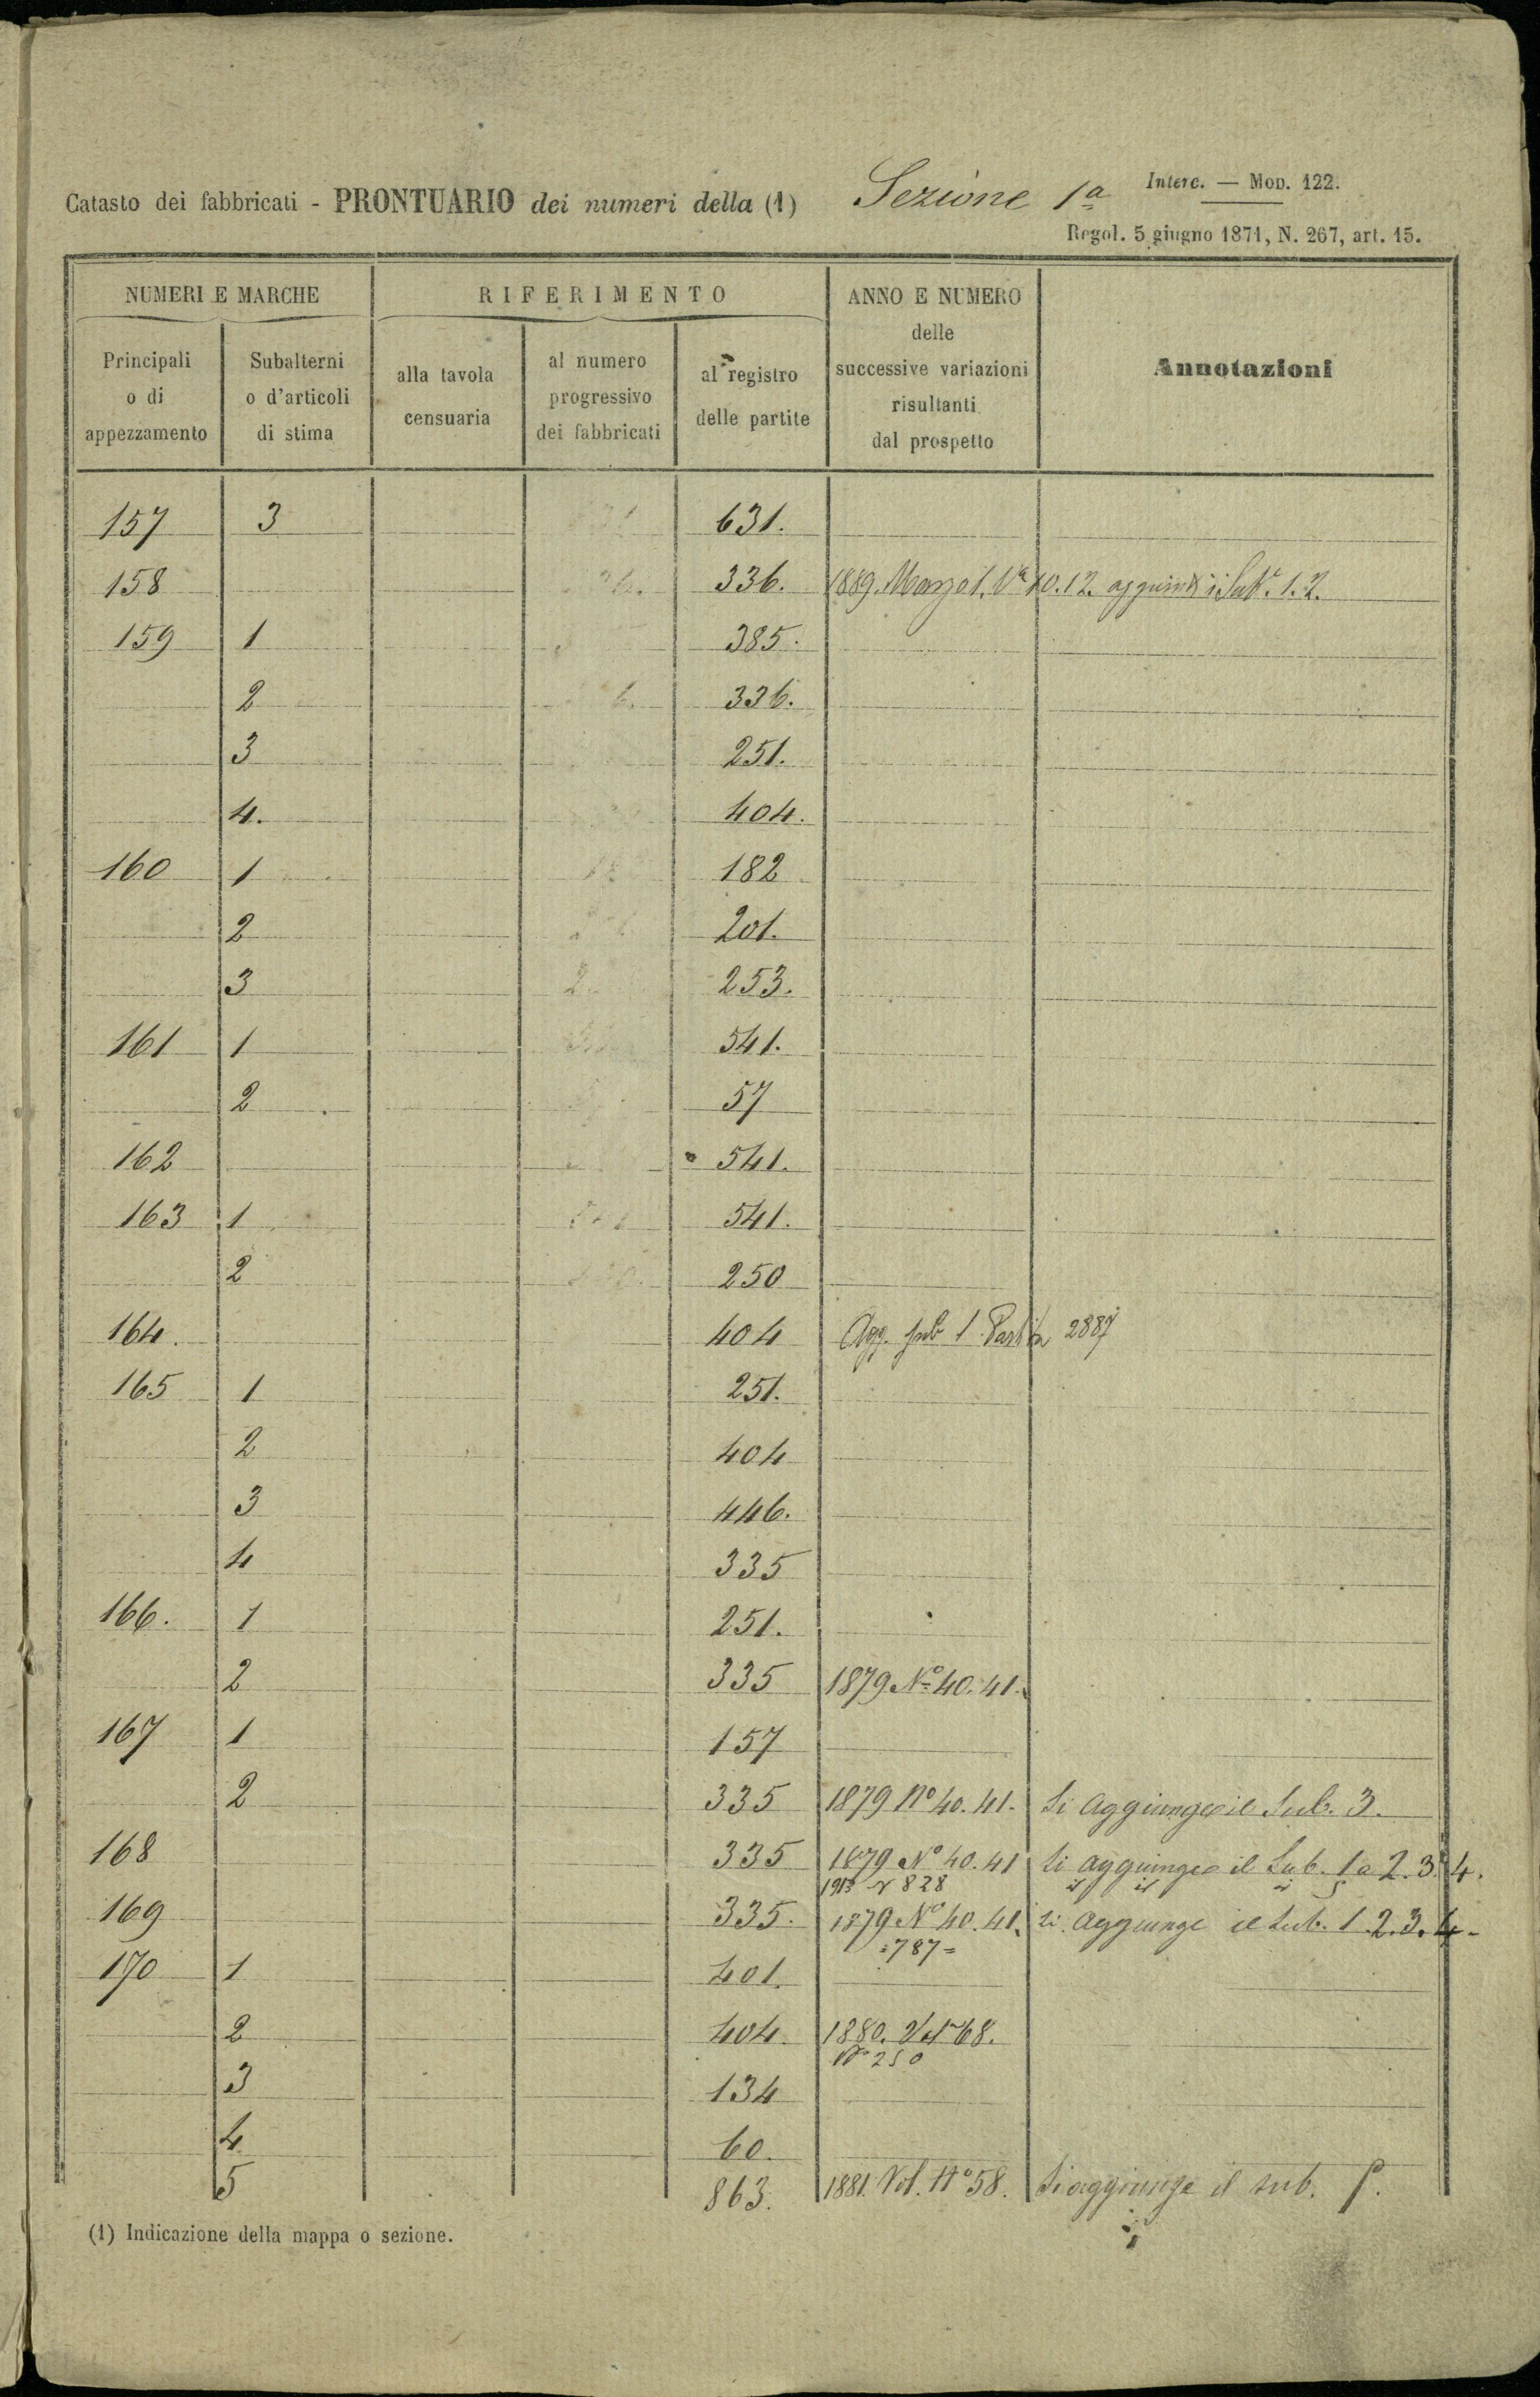 Interc. — Mod. 122.
Catasto dei fabbricati - PRONTUARIO dei numeri della (1) Sezione 1ª
Regol. 5 giugno 1871, N. 267, art. 15.
NUMERI E MARCHE RIFERIMENTO ANNO E NUMERO
delle
successive variazioni
risultanti
dal prospetto
Annotazioni
Principali
o di
appezzamento
Subalterni
o d'articoli
di stima
alla tavola
censuaria
al numero
progressivo
dei fabbricati
al registro
delle partite
157 3 631.
158 336. 1889. Marzo 1. 10.12. 1.2.
159 1 385.
2 336.
3 251.
4. 404.
160 1 182
2 201.
3 253.
161 1 541.
2 57
162 541.
163 1 541.
2 250
164. 404 Agg. sub 1 Partita 2887
165 1 251.
2 404
3 446.
4 335
166. 1 251.
2 335 1879 Nº 40.41.
167 1 157
2 335 1879 Nº 40.41. Si aggiunge il Sub. 3.
168 335 1879 Nº 40.41 Si aggiunge il Sub. 1 a 2.3. 4.
1913 828
169 335. 1879 Nº 40.41. Si aggiunge il Sub. 1.2.3.4-
=787=
170 1 401.
2 404. 1880. 68.
Nº 250
3 134
4 60.
5 863. 1881. Vol. Nº 58. Si aggiunge il sub.
(1) Indicazione della mappa o sezione.